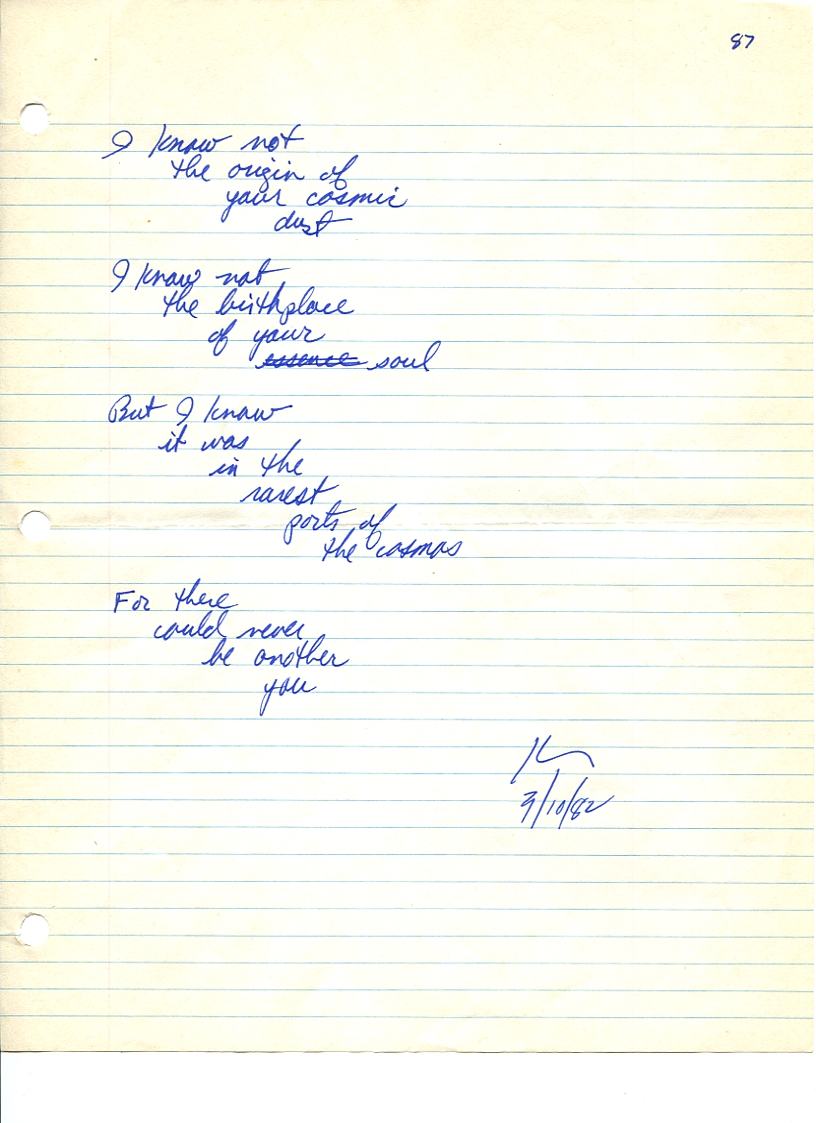 87
I know not
the origin of
your cosmic
dust
I know not
the birthplace
of your
essence soul
But I know
it was
in the
rarest
ports of
the cosmos
For there
could never
be another
you
3/10/82